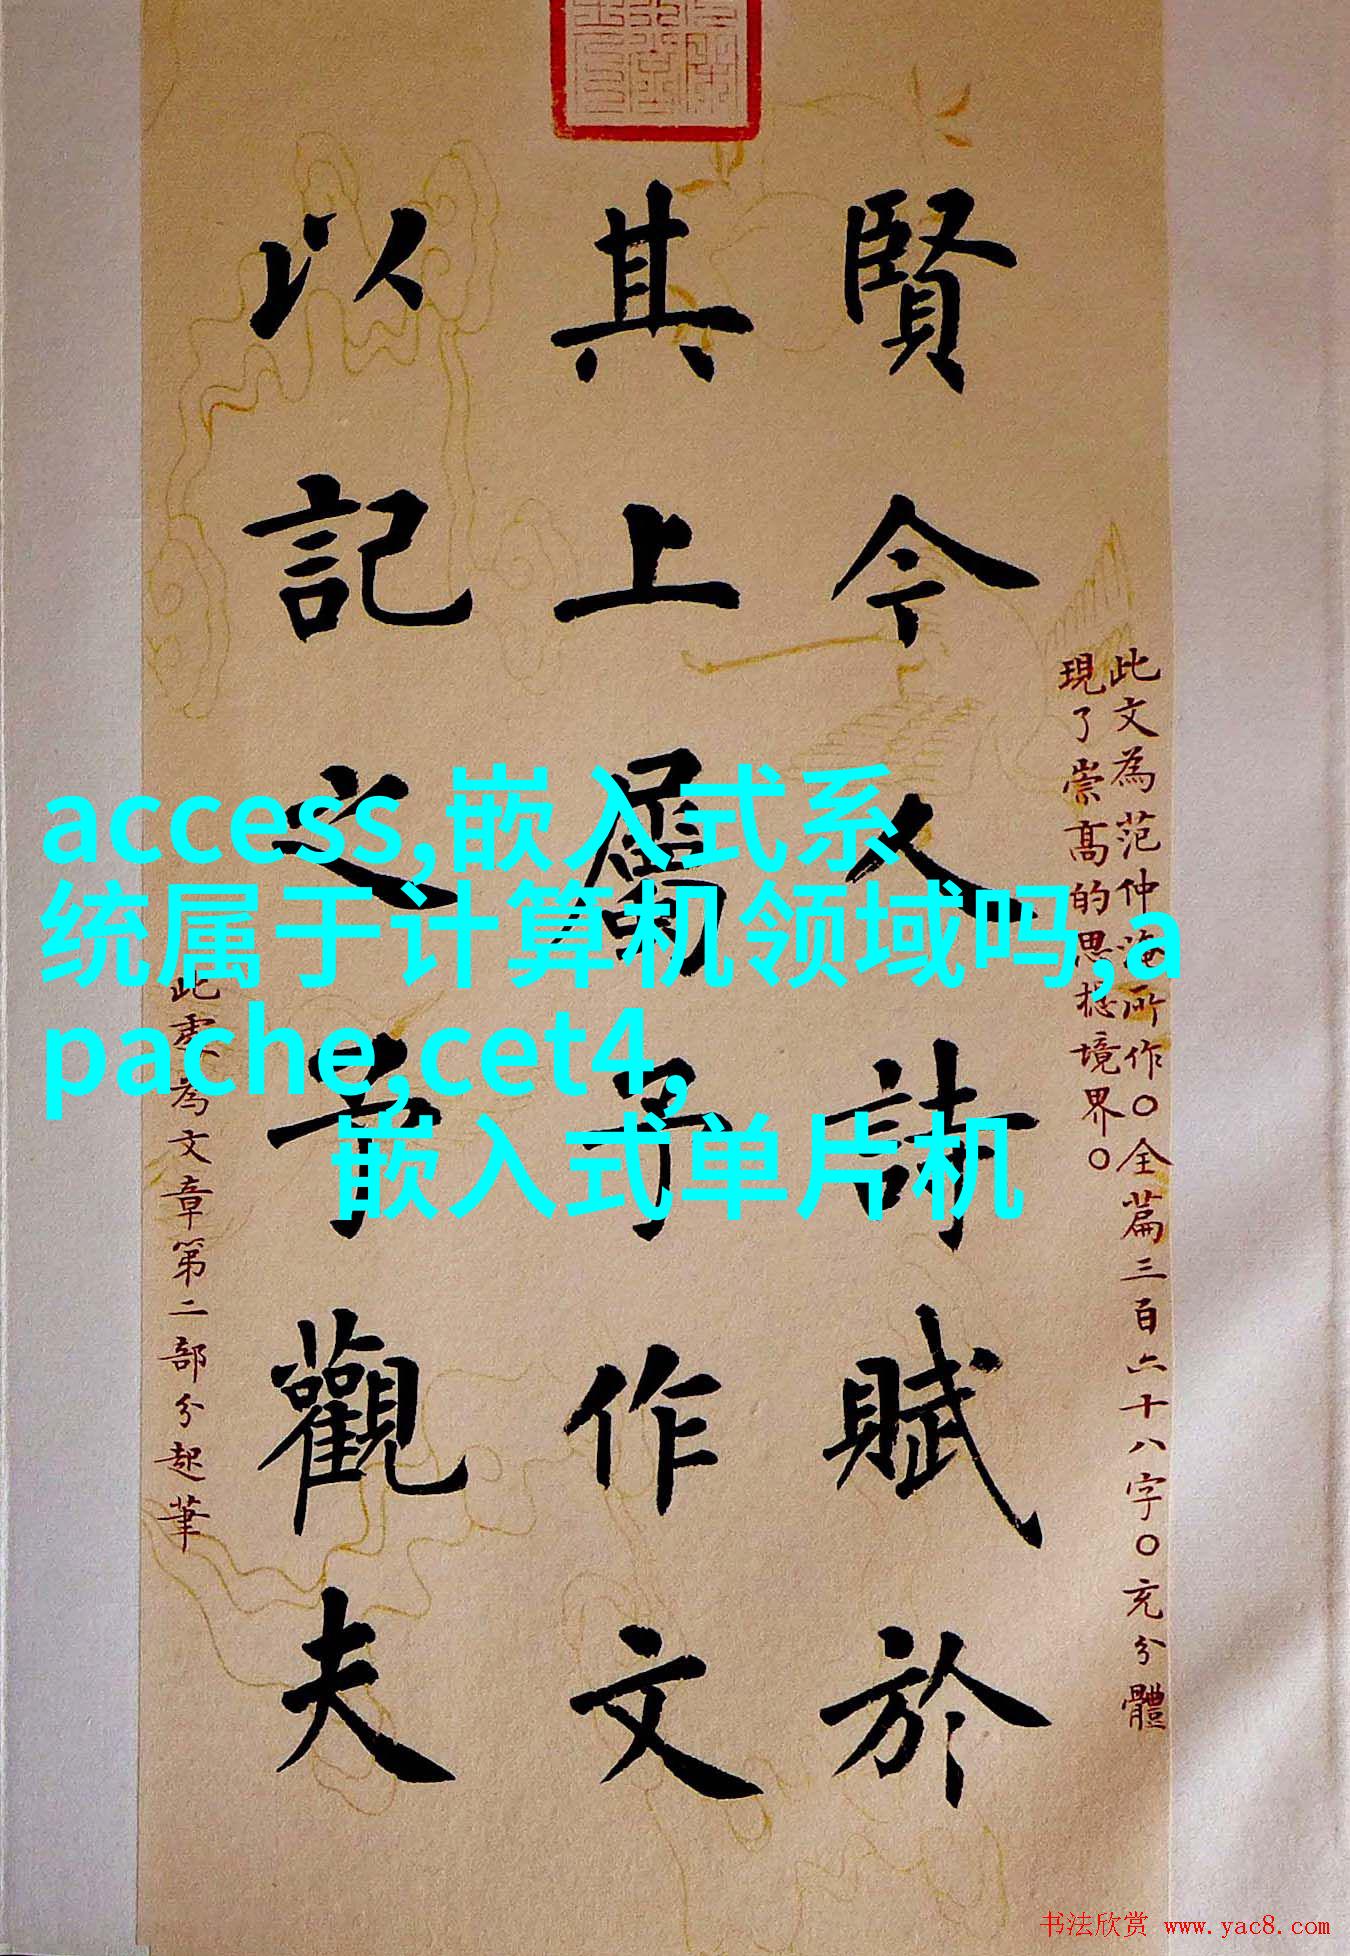 此文為范仲淹所作〇全篇三百六十八字〇充分體
現了崇高的思想境界〇
賢今人詩賦於
其上屬予作文
以記之予觀夫
此處為文章第二部分起筆
access,嵌入式系
统属于计算机领域吗,a
pache,cet4,
嵌入式单片机
书法欣赏 www.yac8.com